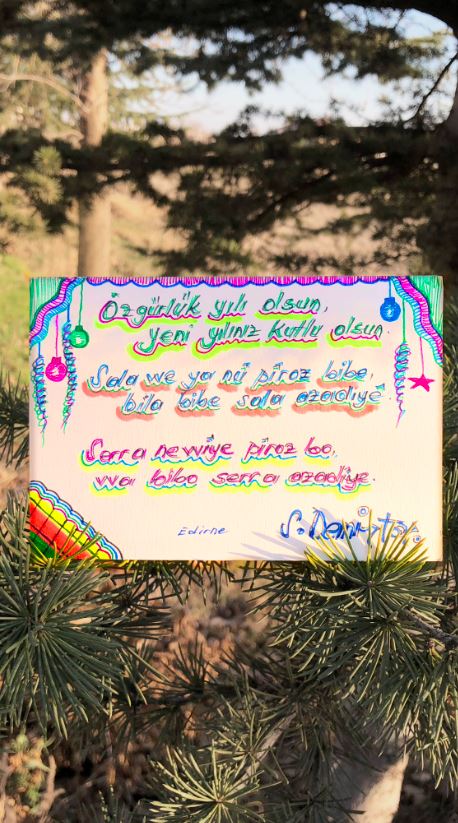 Özgürlük yılı olsun,
yeni yılınız kutlu olsun.
Sala we ya nû pîroz bibe,
bila bibe sala azadiyê.
Serra newîye pîroz bo,
wa bibo serra azadîye.
Edirne
S. Demirtaş